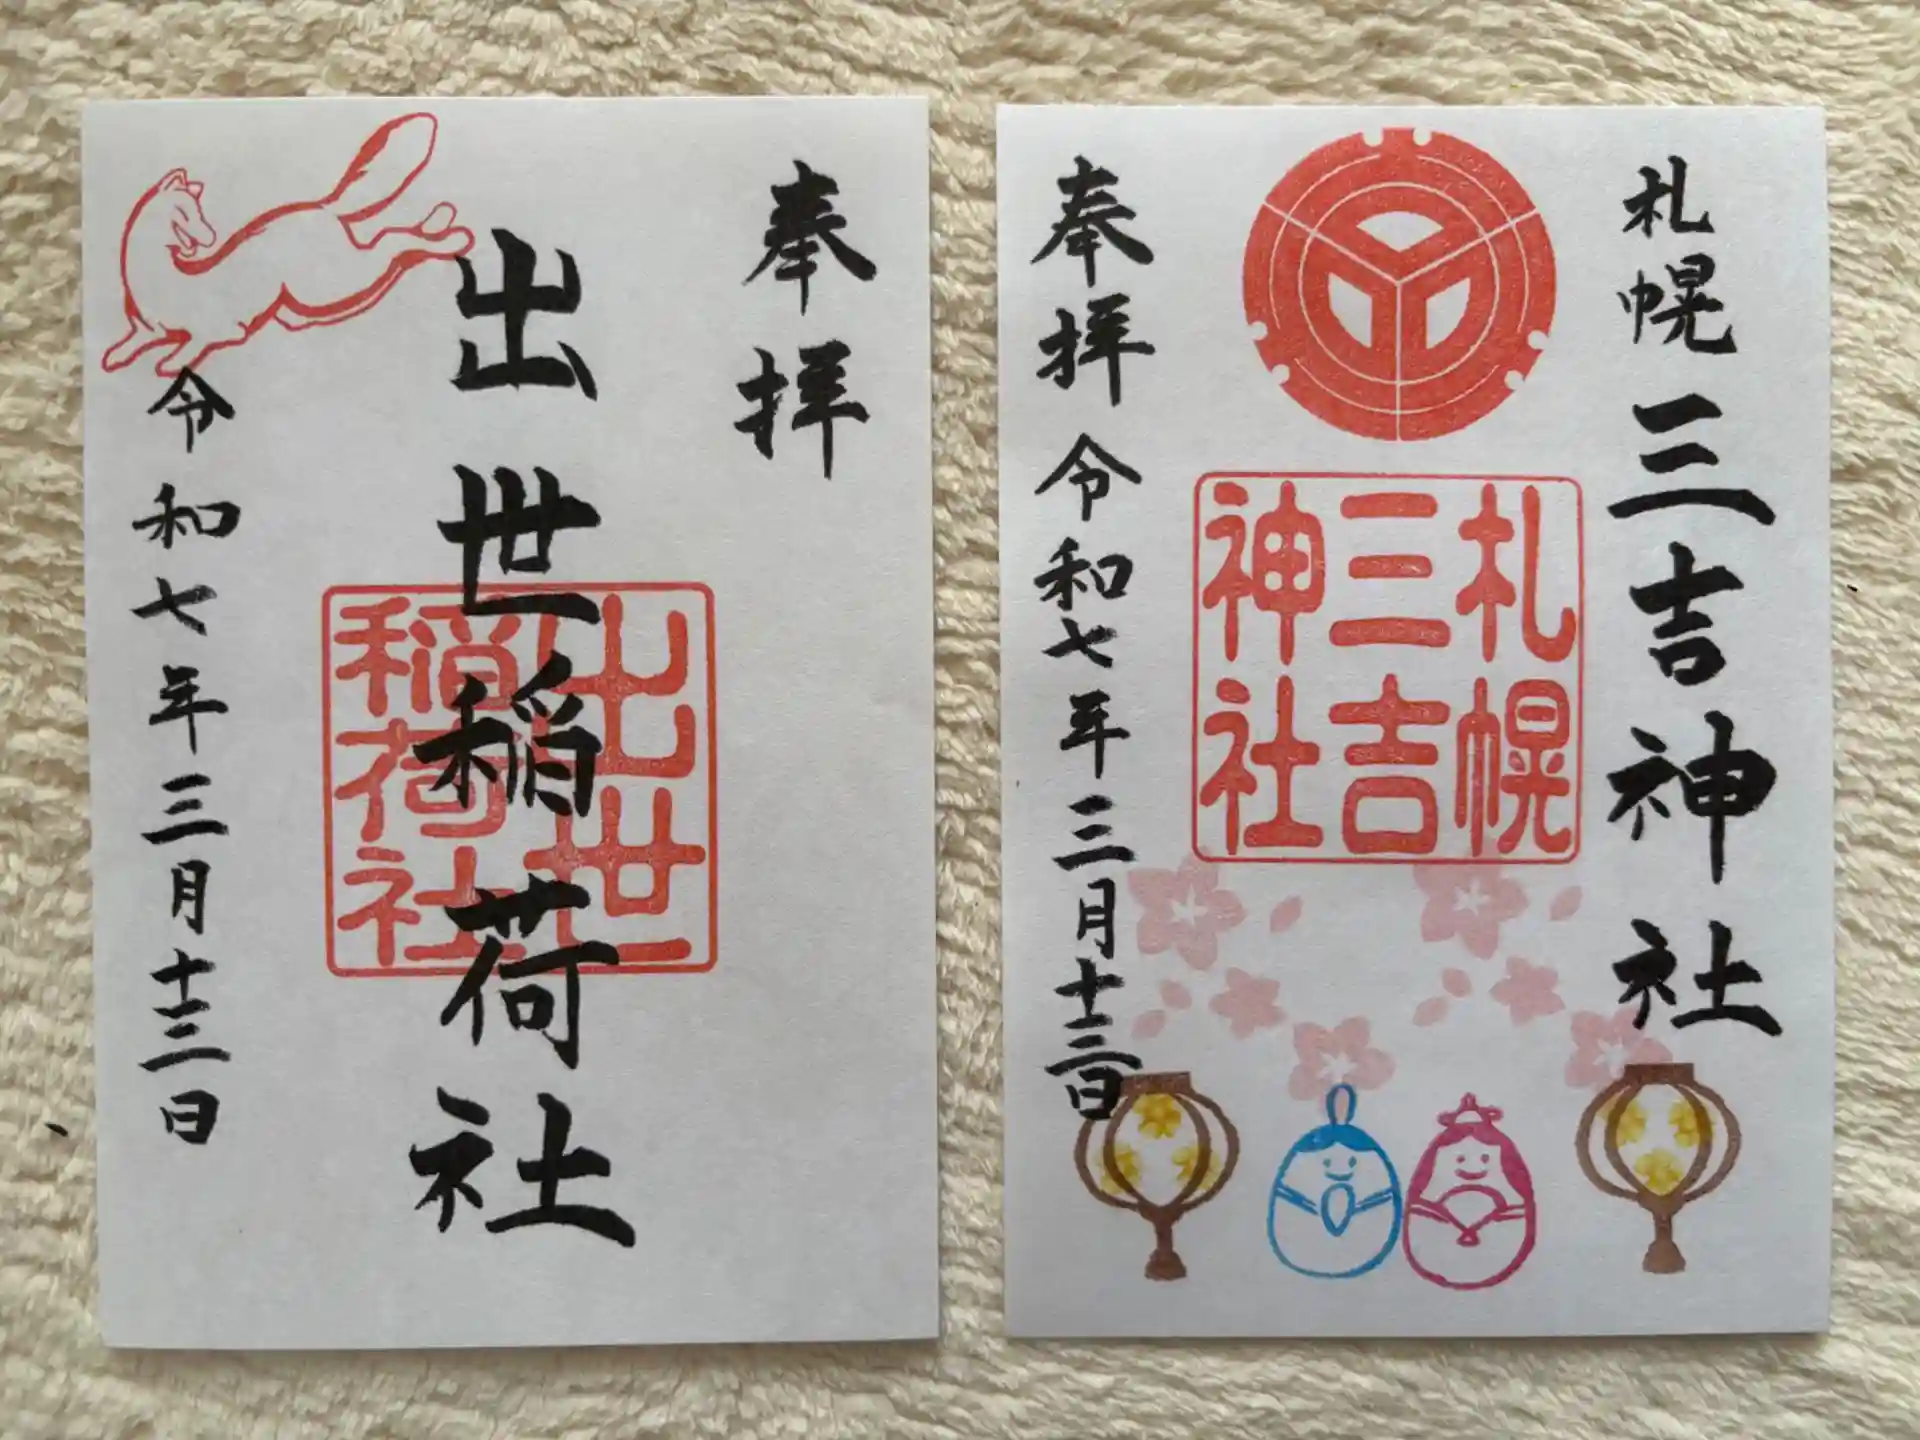 奉拝
出世稲荷社
令和七年三月十三日
出世
稲荷社
札幌三吉神社
札幌
三吉
神社
奉拝令和七年三月十三日